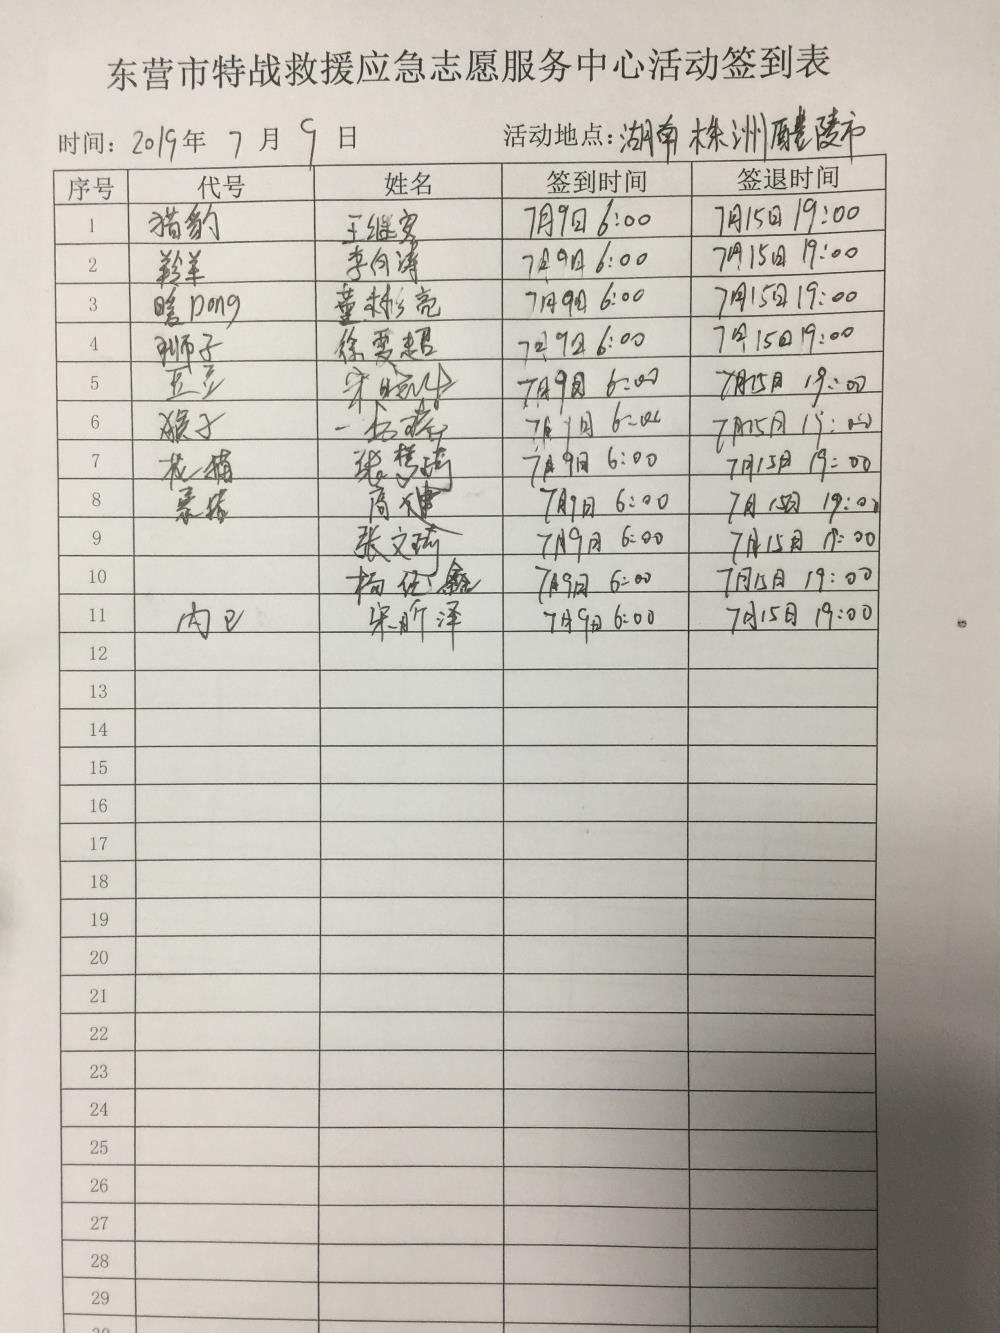 东营市特战救援应急志愿服务中心活动签到表
时间: 2019年 7 月 9 日 活动地点: 湖南株洲醴陵市
序号 代号 姓名 签到时间 签退时间
1 猎豹 王继 7月9日 6:00 7月15日 19:00
2 羚羊 李向涛 7月9日 6:00 7月15日 19:00
3 暖Dong 董彬亮 7月9日 6:00 7月15日 19:00
4 狮子 徐 7月9日 6:00 7月15日 19:00
5 豆豆 宋 7月9日 6:00 7月15日 19:00
6 猴子 杨 7月9日 6:00 7月15日 19:00
7 花猫 张梦琦 7月9日 6:00 7月15日 19:00
8 商健 7月9日 6:00 7月15日 19:00
9 张文琦 7月9日 6:00 7月15日 19:00
10 杨 鑫 7月9日 6:00 7月15日 19:00
11 内卫 宋昕泽 7月9日 6:00 7月15日 19:00
12
13
14
15
16
17
18
19
20
21
22
23
24
25
26
27
28
29